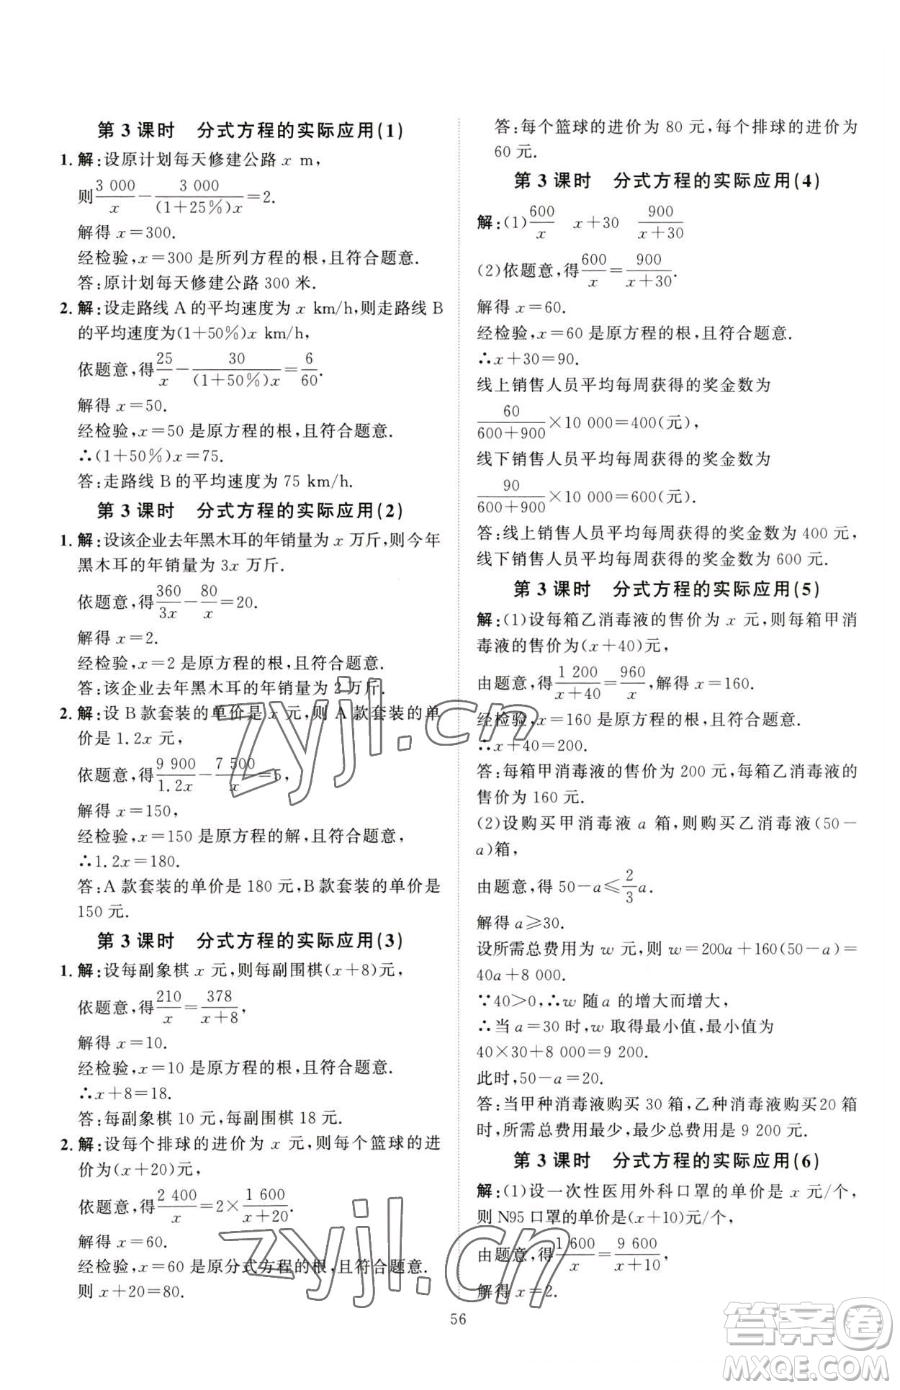 第 3 课时　分式方程的实际应用(1)
1. 解:设原计划每天修建公路 x m,
则 3 000/x − 3 000/(1+25%)x = 2.
解得 x=300.
经检验,x=300 是所列方程的根,且符合题意.
答:原计划每天修建公路 300 米.
2. 解:设走路线 A 的平均速度为 x km/h,则走路线 B
的平均速度为(1+50%)x km/h,
依题意,得 25/x − 30/(1+50%)x = 6/60.
解得 x=50.
经检验,x=50 是原方程的根,且符合题意.
∴(1+50%)x=75.
答:走路线 B 的平均速度为 75 km/h.
第 3 课时　分式方程的实际应用(2)
1. 解:设该企业去年黑木耳的年销量为 x 万斤,则今年
黑木耳的年销量为 3x 万斤.
依题意,得 360/3x − 80/x = 20.
解得 x=2.
经检验,x=2 是原方程的根,且符合题意.
答:该企业去年黑木耳的年销量为 2 万斤.
2. 解:设 B 款套装的单价是 x 元,则 A 款套装的单
价是 1.2x 元,
依题意,得 9 900/1.2x − 7 500/x = 5,
解得 x=150,
经检验,x=150 是原方程的解,且符合题意,
∴1.2x=180.
答:A 款套装的单价是 180 元,B 款套装的单价是
150 元.
第 3 课时　分式方程的实际应用(3)
1. 解:设每副象棋 x 元,则每副围棋(x+8)元,
依题意,得 210/x = 378/(x+8),
解得 x=10.
经检验,x=10 是原方程的根,且符合题意.
∴x+8=18.
答:每副象棋 10 元,每副围棋 18 元.
2. 解:设每个排球的进价为 x 元,则每个篮球的进
价为(x+20)元,
依题意,得 2 400/x = 2× 1 600/(x+20).
解得 x=60.
经检验,x=60 是原分式方程的根,且符合题意.
则 x+20=80.
答:每个篮球的进价为 80 元,每个排球的进价为
60 元.
第 3 课时　分式方程的实际应用(4)
解:(1) 600/x　x+30　900/(x+30)
(2)依题意,得 600/x = 900/(x+30).
解得 x=60.
经检验,x=60 是原方程的根,且符合题意.
∴x+30=90.
线上销售人员平均每周获得的奖金数为
60/(600+900) ×10 000=400(元),
线下销售人员平均每周获得的奖金数为
90/(600+900) ×10 000=600(元).
答:线上销售人员平均每周获得的奖金数为 400 元,
线下销售人员平均每周获得的奖金数为 600 元.
第 3 课时　分式方程的实际应用(5)
解:(1)设每箱乙消毒液的售价为 x 元,则每箱甲消
毒液的售价为(x+40)元,
由题意,得 1 200/(x+40) = 960/x,解得 x=160.
经检验,x=160 是原方程的根,且符合题意,
∴x+40=200.
答:每箱甲消毒液的售价为 200 元,每箱乙消毒液
的售价为 160 元.
(2)设购买甲消毒液 a 箱,则购买乙消毒液(50−
a)箱,
由题意,得 50−a≤ 2/3 a.
解得 a≥30.
设所需总费用为 w 元,则 w=200a+160(50−a)=
40a+8 000.
∵40>0,∴w 随 a 的增大而增大,
∴当 a=30 时,w 取得最小值,最小值为
40×30+8 000=9 200.
此时,50−a=20.
答:当甲种消毒液购买 30 箱,乙种消毒液购买20 箱
时,所需总费用最少,最少费用是 9 200 元.
第 3 课时　分式方程的实际应用(6)
解:(1)设一次性医用外科口罩的单价是 x 元/个,
则 N95 口罩的单价是(x+10)元/个,
由题意,得 1 600/x = 9 600/(x+10),
解得 x=2.
56
zyjl.cn
zyjl.cn
答案圈
MXQE.COM